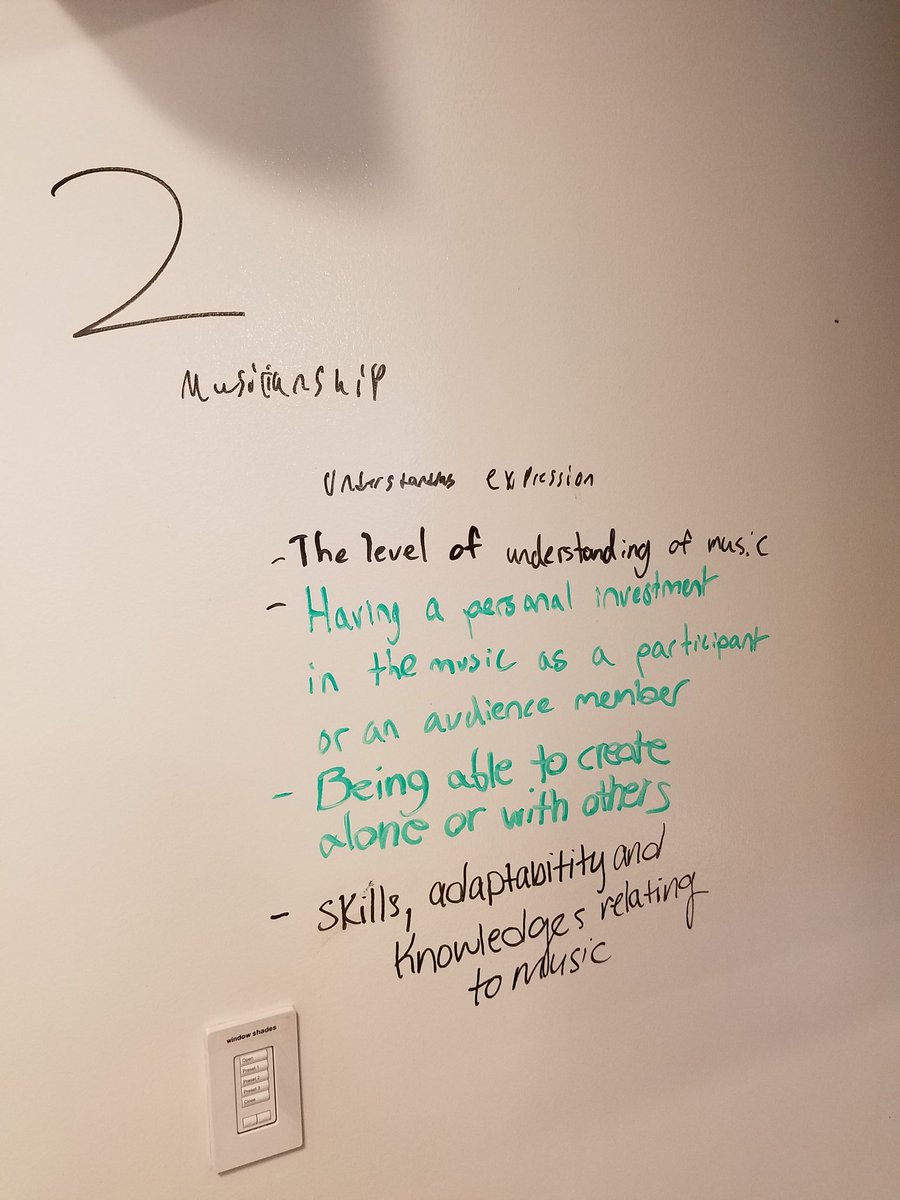 2
Musicianship
Understanding expression
- The level of understanding of music
- Having a personal investment
in the music as a participant
or an audience member
- Being able to create
alone or with others
- Skills, adaptabitity and
Knowledges relating
to music
window shades
Open
Preset 1
Preset 2
Preset 3
Close